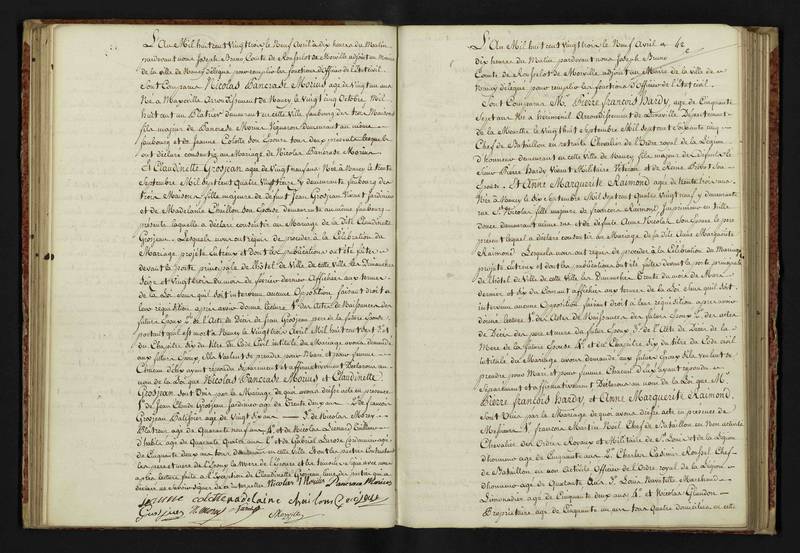 L'An Mil huit cent Vingt trois le Neuf Avril à dix heures du Matin
pardevant nous Joseph Bruno Comte de Rousselot de Morville adjoint au Maire
de la ville de Nancy délégué pour remplir les fonctions d'officier de l'Etat civil.
Sont Comparus Nicolas Pancrase Morius agé de Vingt un ans
Né à Maxeville Arrondissement de Nancy le Vingt cinq Octobre Mil
huit cent un Platrier demeurant en cette Ville faubourg des trois Maisons
fils majeur de Pancrase Morius Vigneron demeurant au même
faubourg et de Jeanne Colotte son Epouse tous deux présents lesquels
ont déclaré consentir au Mariage de Nicolas Pancrase Morius
Et Claudinette Grosjean agée de Vingt neuf ans Née à Nancy le trente
Septembre Mil sept cent quatre Vingt treize y demeurante faubourg des
trois Maisons fille majeure de défunt Jean Grosjean Vivant Jardinier
et de Madelaine Chuillon son Epouse demeurante au même faubourg
présente laquelle a déclaré consentir au Mariage de la dite Claudinette
Grosjean. Lesquels nous ont requis de procéder à la Célébration du
Mariage projetté entr'eux et dont les publications ont été faites
devant la porte principale de l'hôtel de Ville de cette Ville les Dimanches
Seize et Vingt trois du mois de dernier Affichées aux termes
de la Loi sans qu'il soit intervenu aucune Opposition faisant droit à
leur réquisition après avoir donné lecture 1º des Actes de Naissances des
futurs Epoux 2º de l'Acte de Décès de Jean Grosjean père de la future Epouse
portant qu'il est mort à Nancy le Vingt trois Avril Mil huit cent
du Chapitre Six du titre du Code Civil intitulé du Mariage avons demandé
aux futurs Epoux s'ils veulent se prendre pour Mari et pour femme
Chacun d'eux ayant répondu séparément et affirmativement Déclarons au
nom de la Loi que Nicolas Pancrase Morius et Claudinette
Grosjean sont Unis par le Mariage de quoi avons dressé acte en présence
1º de Jean Claude Grosjean Jardinier agé de Trente deux ans 2º de francois
Grosjean agé de Vingt six ans 3º de Nicolas Morey
Platrier agé de Quarante neuf ans 4º et de Nicolas Lienard Tailleur
d'habits agé de Quarante Quatre ans
de Cinquante deux ans tous demeurant en cette Ville
les père et mère de l'Epoux la Mère de l'Epouse et les témoins signé avec nous
après lecture faite à l'exception de Claudinette Grosjean
déclaré ne savoir signer de ce interpellée Nicolas Morius Pancrase Morius
jeanne colotte madelaine Chuilon Grosjean
Grosjean Morey
Morville
L'An Mil huit cent Vingt trois le Neuf Avril à
dix heures du Matin pardevant nous Joseph Bruno
Comte de Rousselot de Morville adjoint au Maire de la ville de
Nancy délégué pour remplir les fonctions d'Officier de l'Etat civil.
Sont Comparus Mr. Pierre François Hardy, agé de Cinquante
Sept ans Né à Herimenil Arrondissement de Lunéville Département
de la Meurthe le Vingt huit Septembre Mil Sept cent Soixante cinq
Chef de Bataillon en retraite Chevalier de l'Ordre royal de la Légion
d'honneur demeurant en cette Ville de Nancy fils majeur de Défunts le
Sieur Pierre Hardy Vivant Militaire Vétéran et de Reine son
Epouse. Et Anne Marguerite Raimond agée de trente trois ans
Née à Nancy le dix Septembre Mil Sept cent quatre Vingt neuf y demeurante
rue St. Nicolas fille majeure de françois Raimond en cette
Ville demeurant même rue et de défunte Anne Nicolas son Epouse le père
présent lequel a déclaré consentir au Mariage de sa fille Anne Marguerite
Raimond. Lesquels nous ont requis de procéder à la Célébration du Mariage
projetté entr'eux et dont les publications ont été faites devant la porte principale
de l'hôtel de Ville de cette Ville les Dimanches Trente du mois de Mars
dernier et Six du Courant affichées aux termes de la Loi sans qu'il soit
intervenu aucune Opposition faisant droit à leur réquisition après avoir
donné lecture 1º des Actes de Naissances des futurs Epoux 2º des actes
de Décès des père et mère du futur Epoux 3º de l'Acte de Décès de la
Mère de la future Epouse 4º et du Chapitre Six du titre du Code civil
intitulé du Mariage avons demandé aux futurs Epoux s'ils veulent se
prendre pour Mari et pour femme Chacun d'eux ayant répondu
séparément et affirmativement Déclarons au nom de la Loi que Mr.
Pierre François Hardy, et Anne Marguerite Raimond
sont Unis par le Mariage de quoi avons dressé acte en présence de
Messieurs 1º françois Martin Noel Chef de Bataillon en Non activité
Chevalier des Ordres Royaux et Militaires de St. Louis et de la Légion
d'honneur agé de Cinquante ans 2º Charles Casimir Roussel Chef
de Bataillon en non activité Officier de l'Ordre royal de la Légion
d'honneur agé de Quarante ans 3º Louis Marchand
Limonadier agé de Cinquante deux ans 4º et Nicolas
Propriétaire agé de Cinquante un ans tous Quatre domiciliés en cette